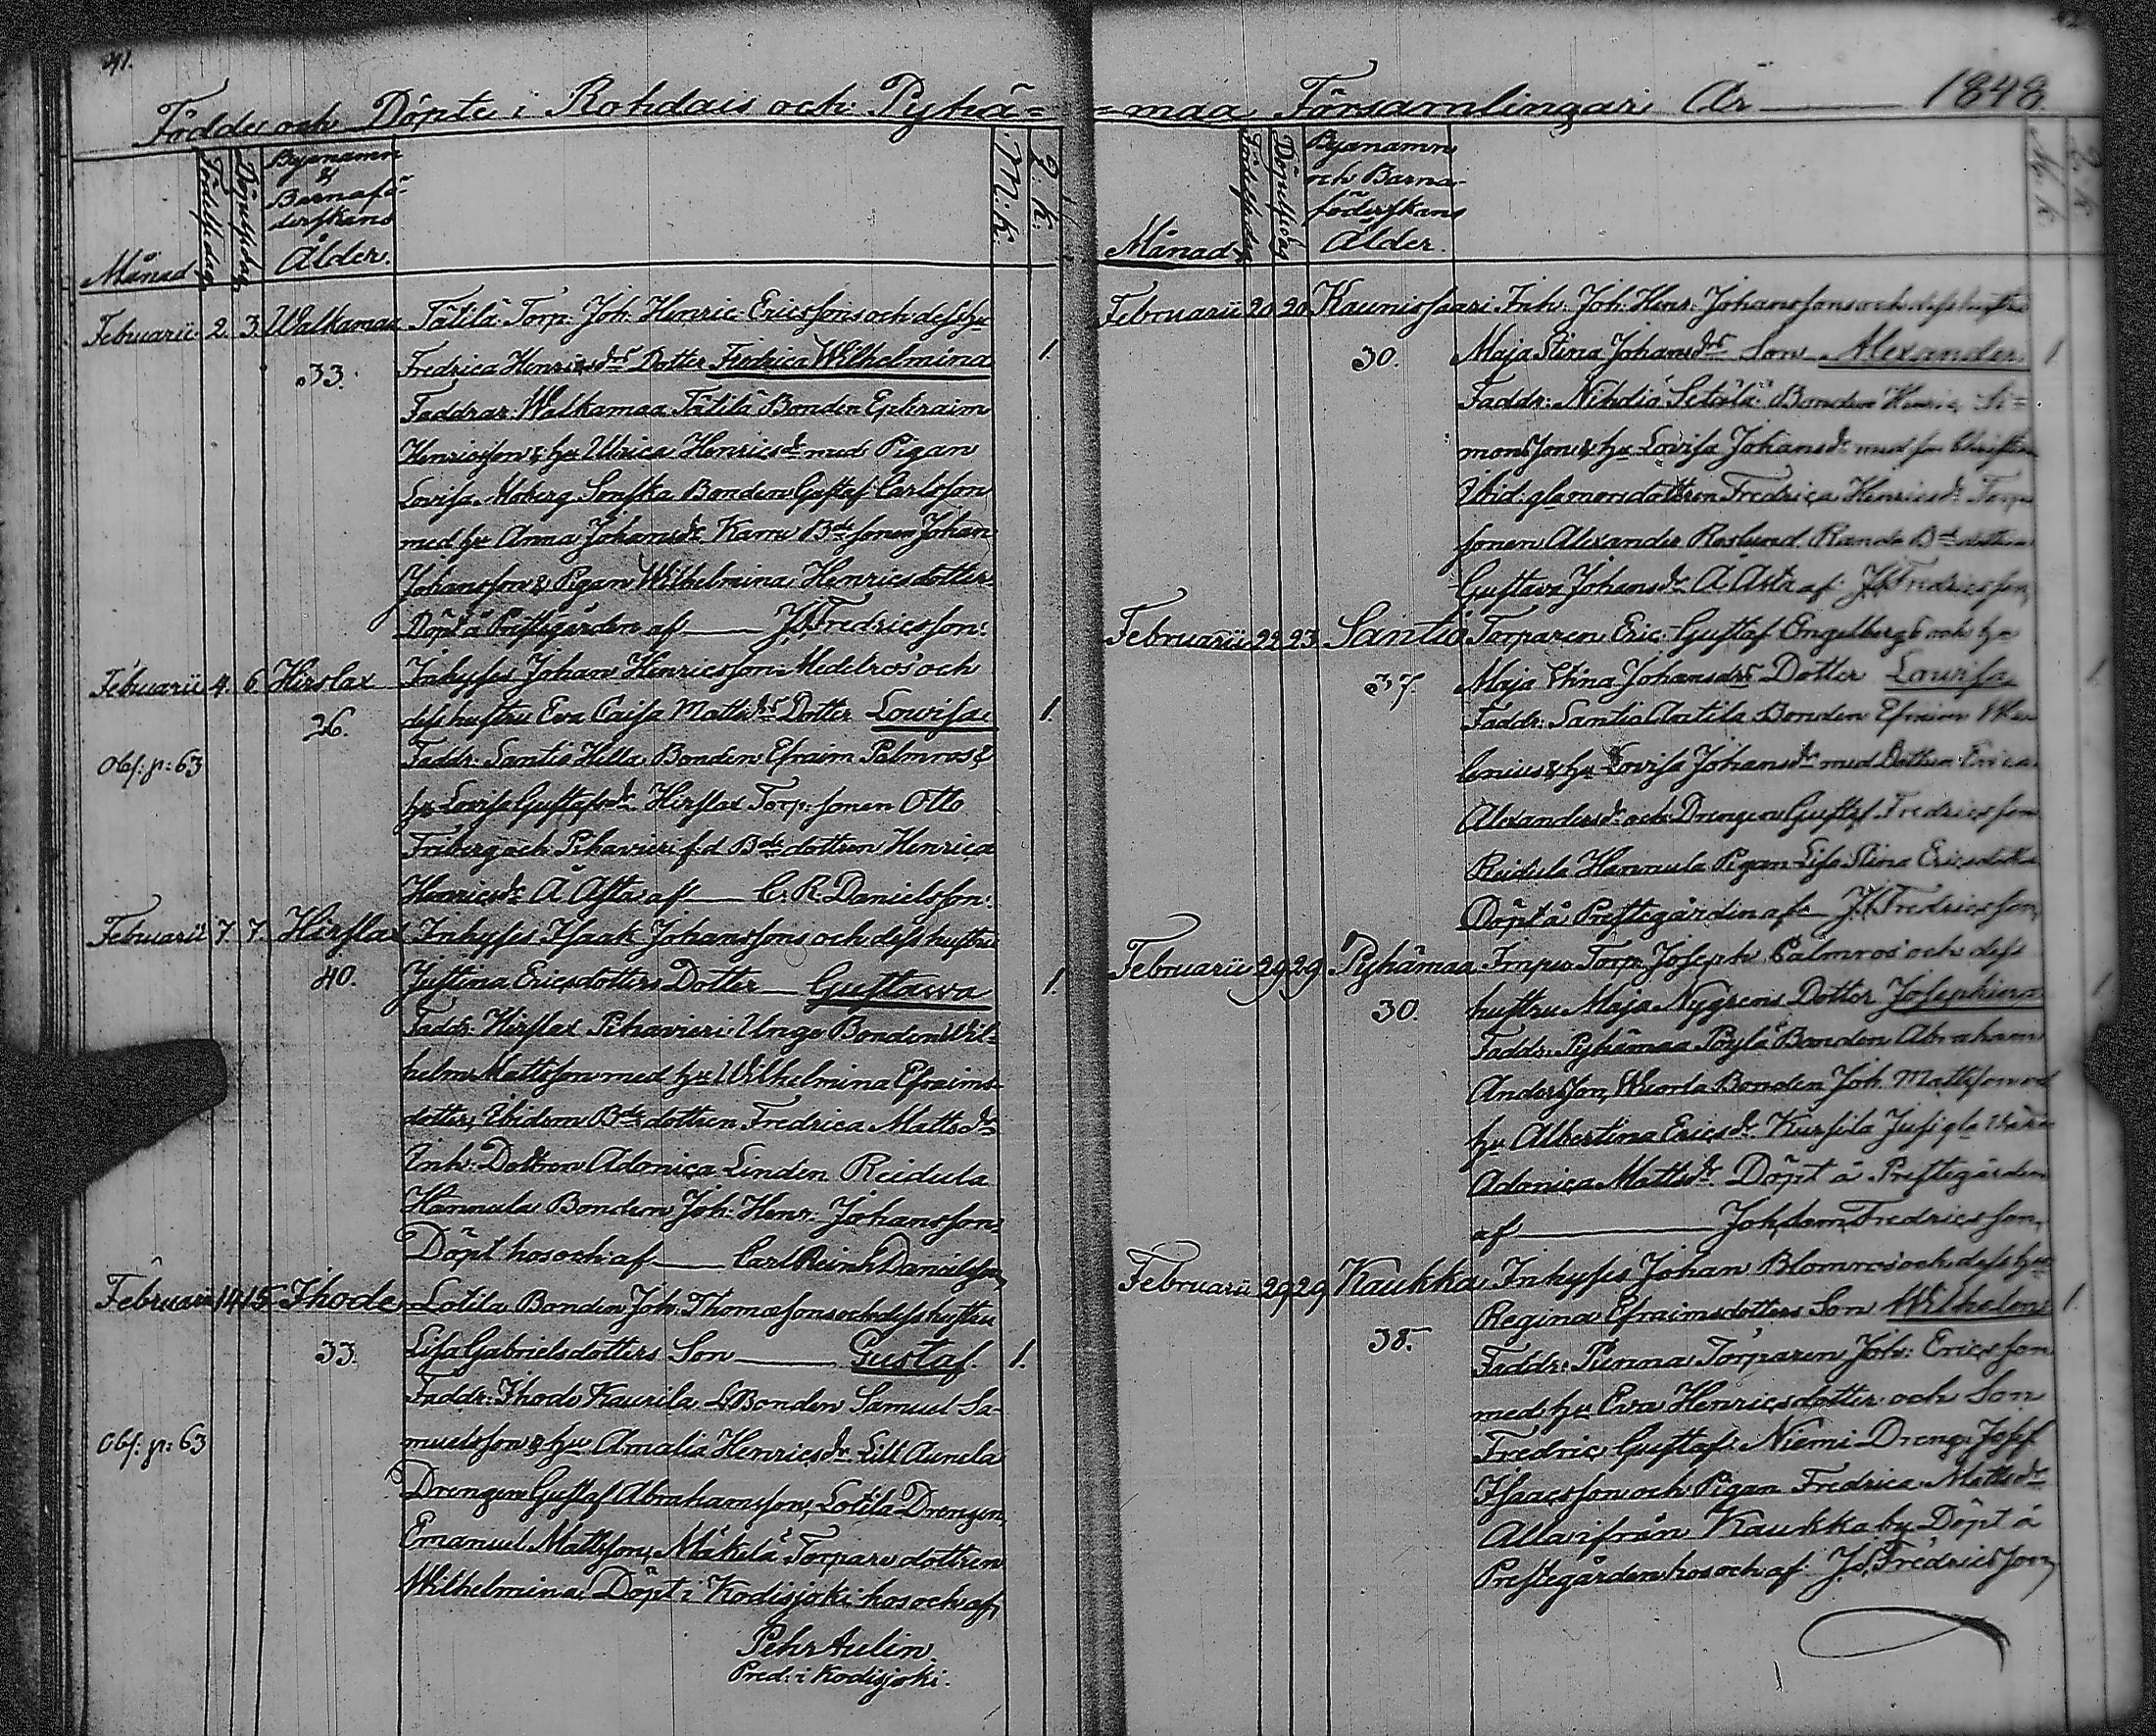 41.
Födde och Döpte i Rohdais och Pyhä=
Månad
Födelsedag
Döpelsedag
Byanamn
&
Barnafö-
derskans
Ålder.
M. k.
Q. k.
Februarii 2. 3. Walkamaa Tätilä Torp. Joh. Henric Ericssons och dess hu
33. Fredrica Henricsdrs Dotter Fredrica Wilhelmina 1.
Faddrar: Walkamaa Tätilä Bonden Ephraim
Henricsson & hu Ulrica Henricsdr med Pigan
Lovisa Moberg Sonska Bonden Gustaf Carlsson
med hu Anna Johansdr Karru Bde sonen Johan
Johansson & Pigan Wilhelmina Henricsdotter
Döpt å Prestegården af J. Fredricsson.
Februarii 4. 6 Hirslax Inhyses Johan Henricsson Medelros och
26. dess hustru Eva Caisa Mattsdrs Dotter Lowisa 1.
Obs: p: 63 Faddr: Santio Hilla Bonden Efraim Palmros &
hu Lovisa Gustafsdr Hirslax Torp. sonen Otto
Friberg och Pihavieri f.d Bde dottren Henrica
Henricsdr Å Asta af C. R. Danielsson.
Februarii 7. 7. Hirslax Inhyses Isaak Johanssons och dess hustru
40. Justina Ericsdotters Dotter Gustawa 1.
Faddr: Hirslax Pihavieri Unge Bonden Wil-
helm Mattsson med hu Wilhelmina Efraims-
dotter, Ibidem Bde dottren Fredrica Mattsdr
Inh: Dottren Adonica Linden Reidula
Hannula Bonden Joh: Henr: Johansson.
Döpt hos och af Carl Reinh Danielsson,
Februarii 14 15 Ihode Lotila Bonden Joh. Thomassons och dess hustru
33. Lisa Gabrielsdotters Son Gustaf. 1.
Faddr: Ihode Kaurila Bonden Samuel Sa-
Obs: p: 63 muelsson & hu Amalia Henricsdr Lill Aunela
Drengen Gustaf Abrahamsson, Lotila Drengen
Emanuel Mattsson, Mäkelä Torpare dottren
Wilhelmina. Döpt i Kodisjoki hos och af
Pehr Aulin.
Pred: i Kodisjoki.
=maa Församlingar i År 1848
Månad
Födelsedag
Döpelsedag
Byanamn
och Barna-
föderskans
Ålder.
M. k.
Q. k
Februarii 20 20 Kaunissaari Inh: Joh: Henr: Johanssons och dess hustru
30. Maja Stina Johansdrs Son Alexander. 1
Faddr: Nihdiö Setälä Bonden Henric Si=
monsson & hu Lovisa Johansdr med
Ibid: gla mors dottren Fredrica Henricsdr Torp
sonen Alexander Roslund Randa Bde dottren
Gustava Johansdr Å Asta af J. Fredricsson,
Februarii 22 23 Santio Torparen Eric Gustaf Engelbergs och hu
37. Maja Stina Johansdrs Dotter Lowisa 1
Faddr: Santio Antila Bonden Efraim
lenius & hu Lovisa Johansdr med Dottren Erica
Alexandersdr och Drengen Gustaf Fredricsson
Reidula Hannula Pigan Lisa Stina Ericsdotter
Döpt å Prestegården af J. Fredricsson,
Februarii 29 29 Pyhämaa Torp. Joseph Palmros och dess
30. hustru Maja Nygrens Dotter Josephina 1
Faddr: Pyhämaa Pöylä Bonden Abraham
Andersson, Wuorla Bonden Joh. Mattsson och
hu Albertina Ericsdr Kursila
Adonica Mattsdr Döpt å Prestegården
af Joh. Fredricsson,
Februarii 29 29 Kaukka Inhyses Johan Blomros och dess hu
38. Regina Efraimsdotters Son Wilhelm 1.
Faddr: Punna Torparen Joh: Ericsson
med hu Eva Henricsdotter och Son
Fredric Gustaf. Niemi Dreng. Josef
Isaacsson och Pigan Fredrica Mattsdr
Alla ifrån Kaukka by Döpt å
Prestegården hos och af J. Fredricsson,